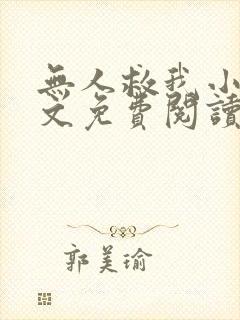 無人救我小
文免費閱讀
郭美瑜